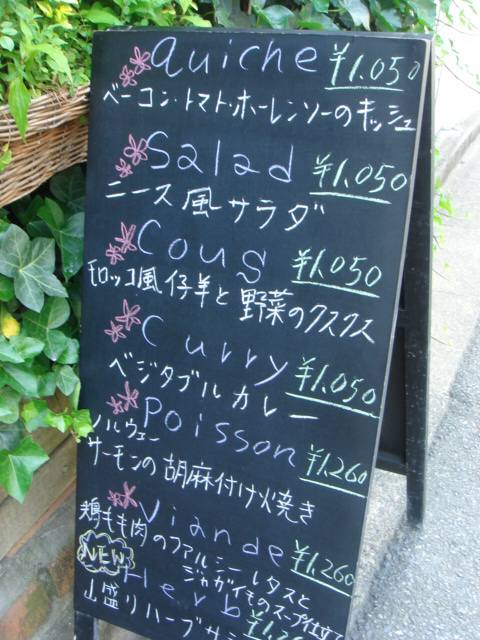 Quiche ¥1.050
ベーコン・トマト・ホーレンソーのキッシュ
Salad ¥1.050
ニース風サラダ
Cous ¥1.050
モロッコ風仔羊と野菜のクスクス
Curry ¥1.050
ベジタブルカレー
Poisson ¥1.260
ノルウェー
サーモンの胡麻付け焼き
Viande ¥1.260
鶏もも肉のファルシーレタスと
ジャガイモのスープ仕立
NEW Herb
山盛りハーブサラ